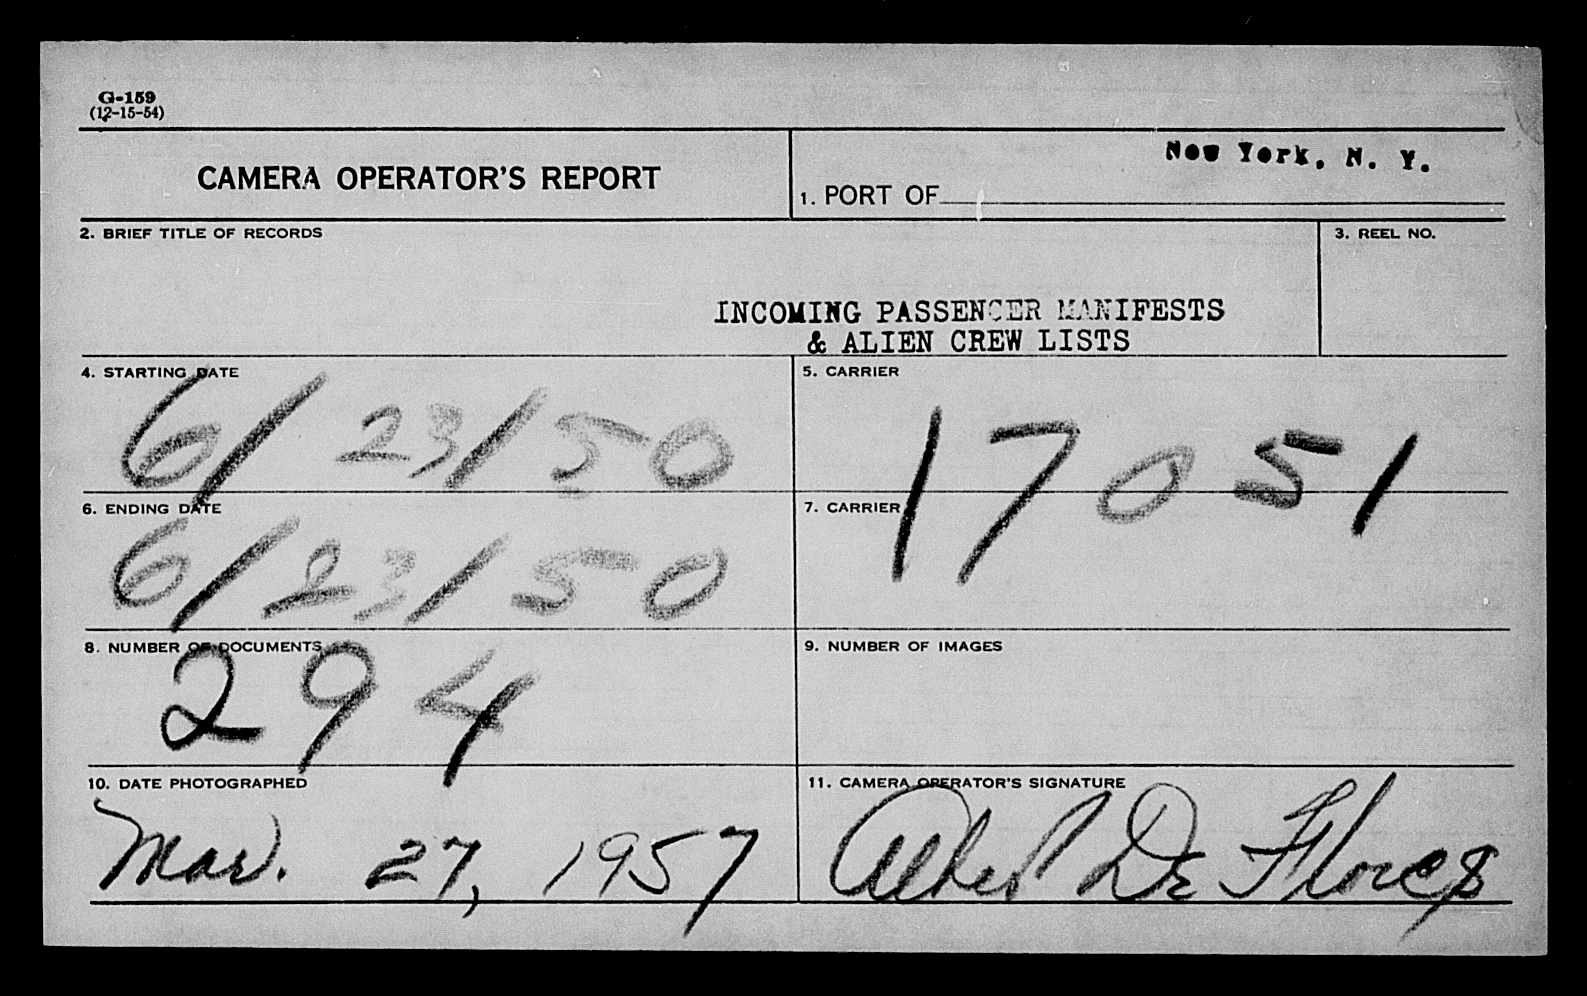 G-159
(12-15-54)
CAMERA OPERATOR'S REPORT
New York, N. Y.
1. PORT OF
2. BRIEF TITLE OF RECORDS
3. REEL NO.
INCOMING PASSENGER MANIFESTS
& ALIEN CREW LISTS
4. STARTING DATE
6/23/50
5. CARRIER
17051
6. ENDING DATE
6/23/50
7. CARRIER
8. NUMBER OF DOCUMENTS
294
9. NUMBER OF IMAGES
10. DATE PHOTOGRAPHED
Mar. 27, 1957
11. CAMERA OPERATOR'S SIGNATURE
Albert De Flores